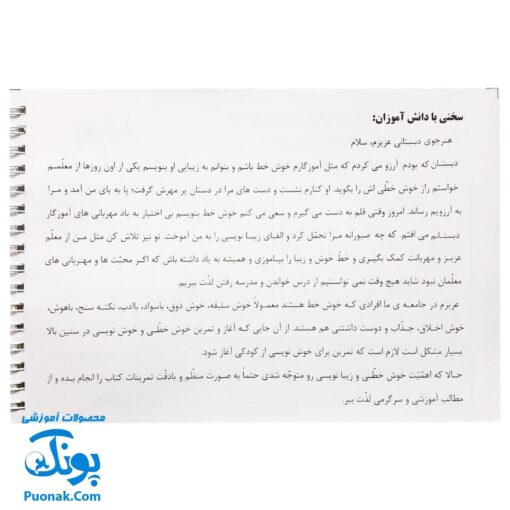 سخنی با دانش آموزان:
هنرجوی دبستانی عزیزم، سلام
دبستان که بودم آرزو می کردم که مثل آموزگارم خوش خط باشم و بتوانم به زیبایی او بنویسم یکی از اون روزها از معلّمم
خواستم راز خوش خطّی اش را بگوید. او کنارم نشست و دست های مرا در دستان پر مهرش گرفت؛ پا به پای من آمد و مرا
به آرزویم رساند. امروز وقتی قلم به دست می گیرم و سعی می کنم خوش خط بنویسم بی اختیار به یاد مهربانی های آموزگار
دبستانم می افتم که چه صبورانه مرا تحمّل کرد و الفبای زیبا نویسی را به من آموخت. تو نیز تلاش کن مثل من از معلم
عزیز و مهربانت کمک بگیری و خطّ خوش و زیبا را بیاموزی و همیشه به یاد داشته باش که اگر محبّت ها و مهربانی های
معلّمان نبود شاید هیچ وقت نمی توانستیم از درس خواندن و مدرسه رفتن لذّت ببریم.
عزیزم در جامعه ی ما افرادی که خوش خط هستند معمولاً خوش سلیقه، خوش ذوق، باسواد، باادب، نکته سنج، باهوش،
خوش اخلاق، جذّاب و دوست داشتنی هم هستند. از آن جایی که آغاز و تمرین خوش خطّی و خوش نویسی در سنین بالا
بسیار مشکل است لازم است که تمرین برای خوش نویسی از کودکی آغاز شود.
حالا که اهمّیّت خوش خطّی و زیبا نویسی رو متوجّه شدی حتماً به صورت منظّم و بادقّت تمرینات کتاب را انجام بده و از
مطالب آموزشی و سرگرمی لذّت ببر.
محصولات آموزشی
پونک
Puonak.Com